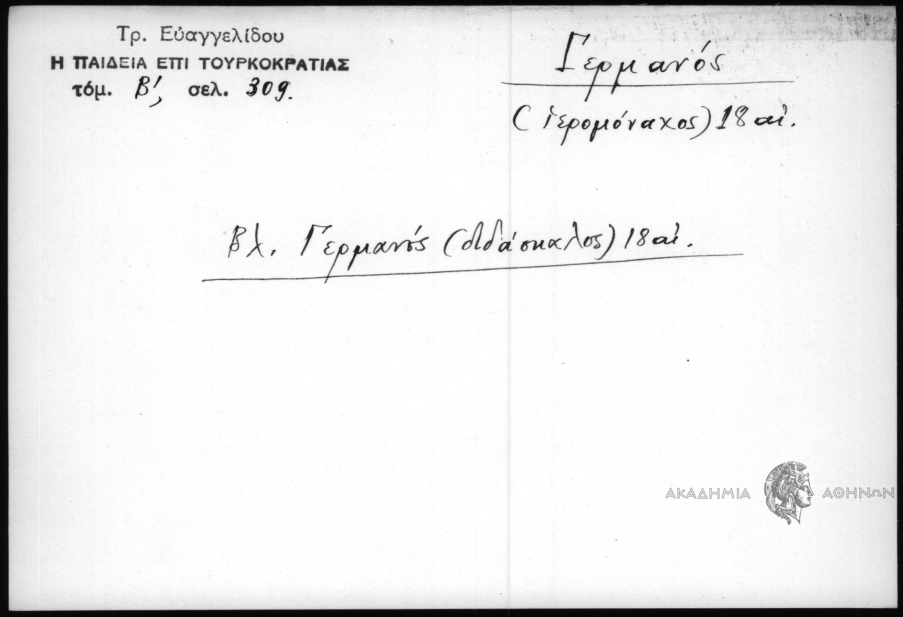 Τρ. Εὐαγγελίδου
Η ΠΑΙΔΕΙΑ ΕΠΙ ΤΟΥΡΚΟΚΡΑΤΙΑΣ
τόμ. Β', σελ. 309.
Γερμανός
(ἱερομόναχος) 18 αἰ.
Βλ. Γερμανός (διδάσκαλος) 18 αἰ.
ΑΚΑΔΗΜΙΑ ΑΘΗΝΩΝ